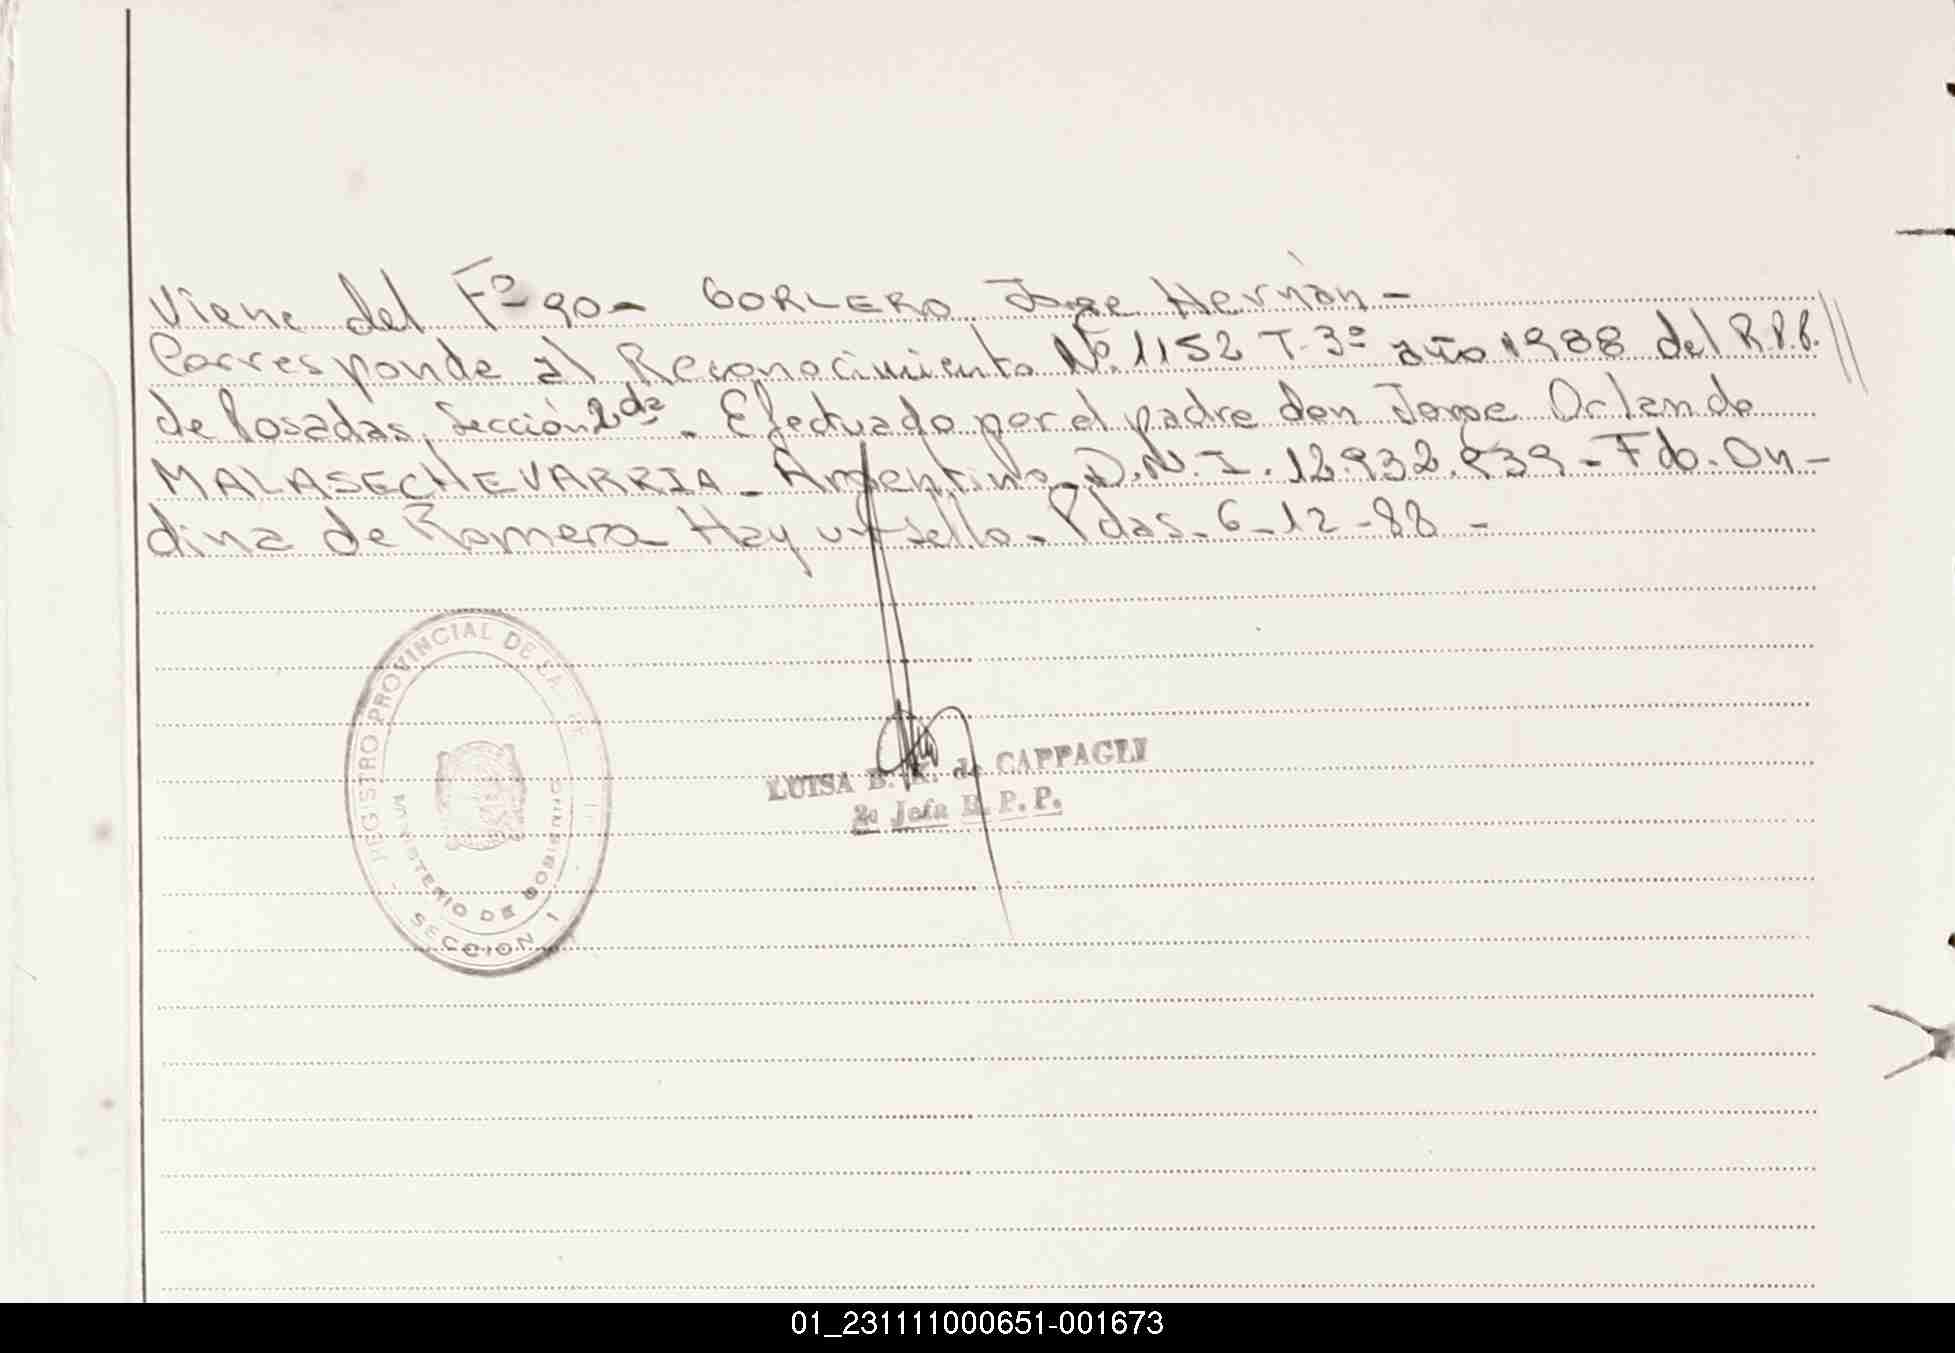 Viene del Fº 90 - GORLERO Jorge Hernán -
Corresponde al Reconocimiento Nº 1152 T-3º año 1988 del R.P.P.
de Posadas, Sección 2da - Efectuado por el padre don Jorge Orlando
MALASECHEVARRIA - Argentino - D.N.I. 12.932.939 - Fdo. On-
dina de Romero - Hay un sello - Pdas. 6-12-88 -
REGISTRO PROVINCIAL DE LAS
MINISTERIO DE GOBIERNO
SECCION 1
LUISA B. K. de CAPPAGLI
2a Jefa R. P. P.
01_231111000651-001673